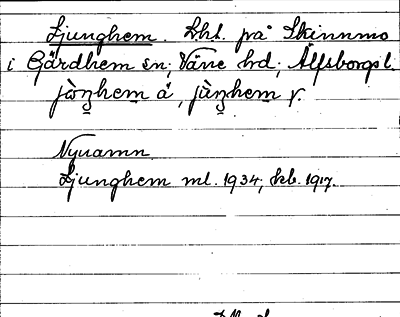 Ljunghem. Lht. på Skinnmo
i Gärdhem sn; Väne hd; Älfsborgs l.
jòn̠ghem̠ ä, jùn̠ghem̠ y.
Nynamn
Ljunghem ml. 1934; kb. 1917.